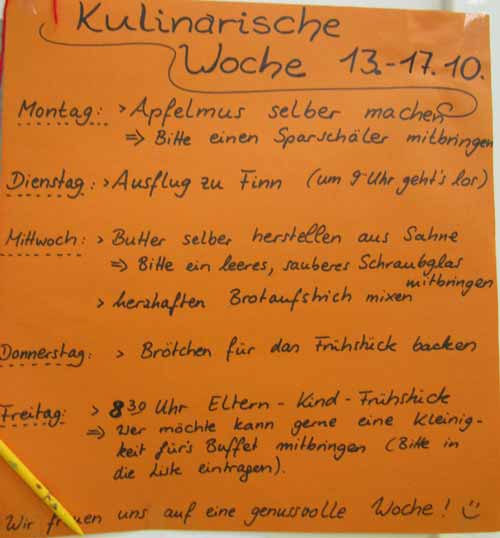 Kulinarische
Woche 13.-17.10.
Montag: > Apfelmus selber machen
=> Bitte einen Sparschäler mitbringen
Dienstag: > Ausflug zu Finn (um 9 Uhr geht's los)
Mittwoch: > Butter selber herstellen aus Sahne
=> Bitte ein leeres, sauberes Schraubglas
mitbringen
> herzhaften Brotaufstrich mixen
Donnerstag: > Brötchen für das Frühstück backen
Freitag: > 8 30 Uhr Eltern-Kind-Frühstück
=> Wer möchte kann gerne eine Kleinig-
keit für's Buffet mitbringen (Bitte in
die Liste eintragen).
Wir freuen uns auf eine genussvolle Woche! ☺